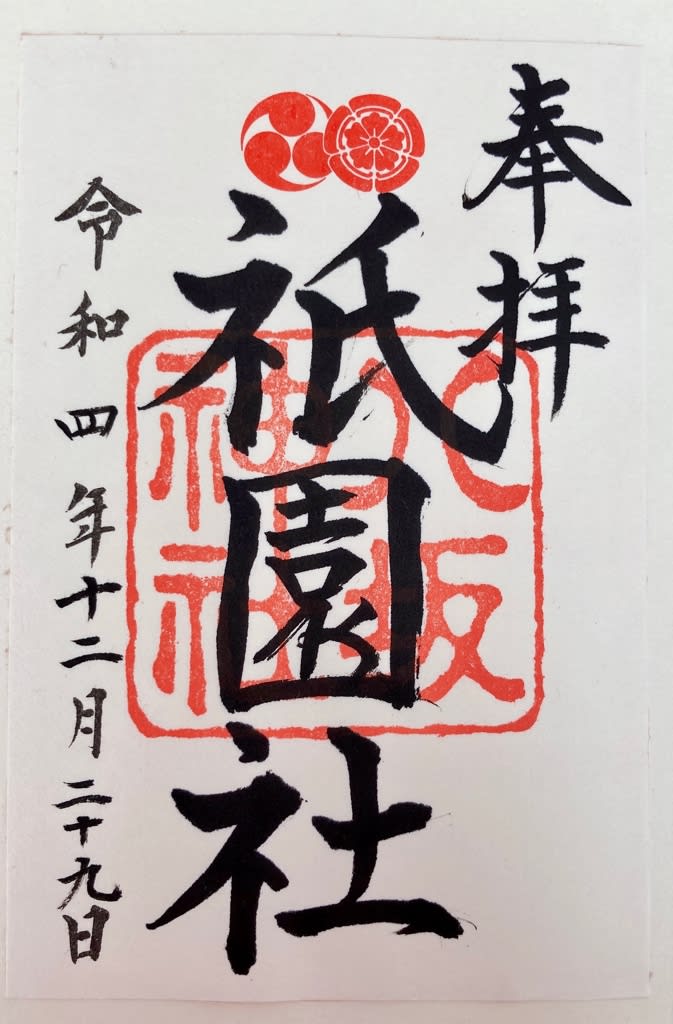 奉拝
祇園社
八坂
神社
令和四年十二月二十九日